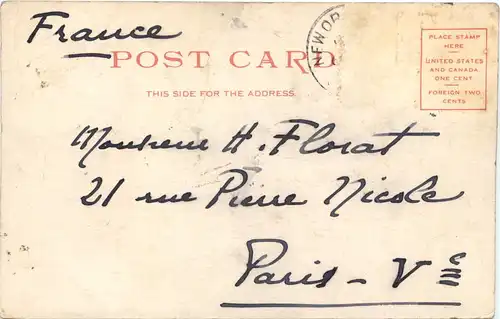 France
POST CARD
NEW OR
PLACE STAMP
HERE
UNITED STATES
AND CANADA
ONE CENT
FOREIGN TWO
CENTS
THIS SIDE FOR THE ADDRESS.
Monsieur H. Florat
21 rue Pierre Nicole
Paris - Ve